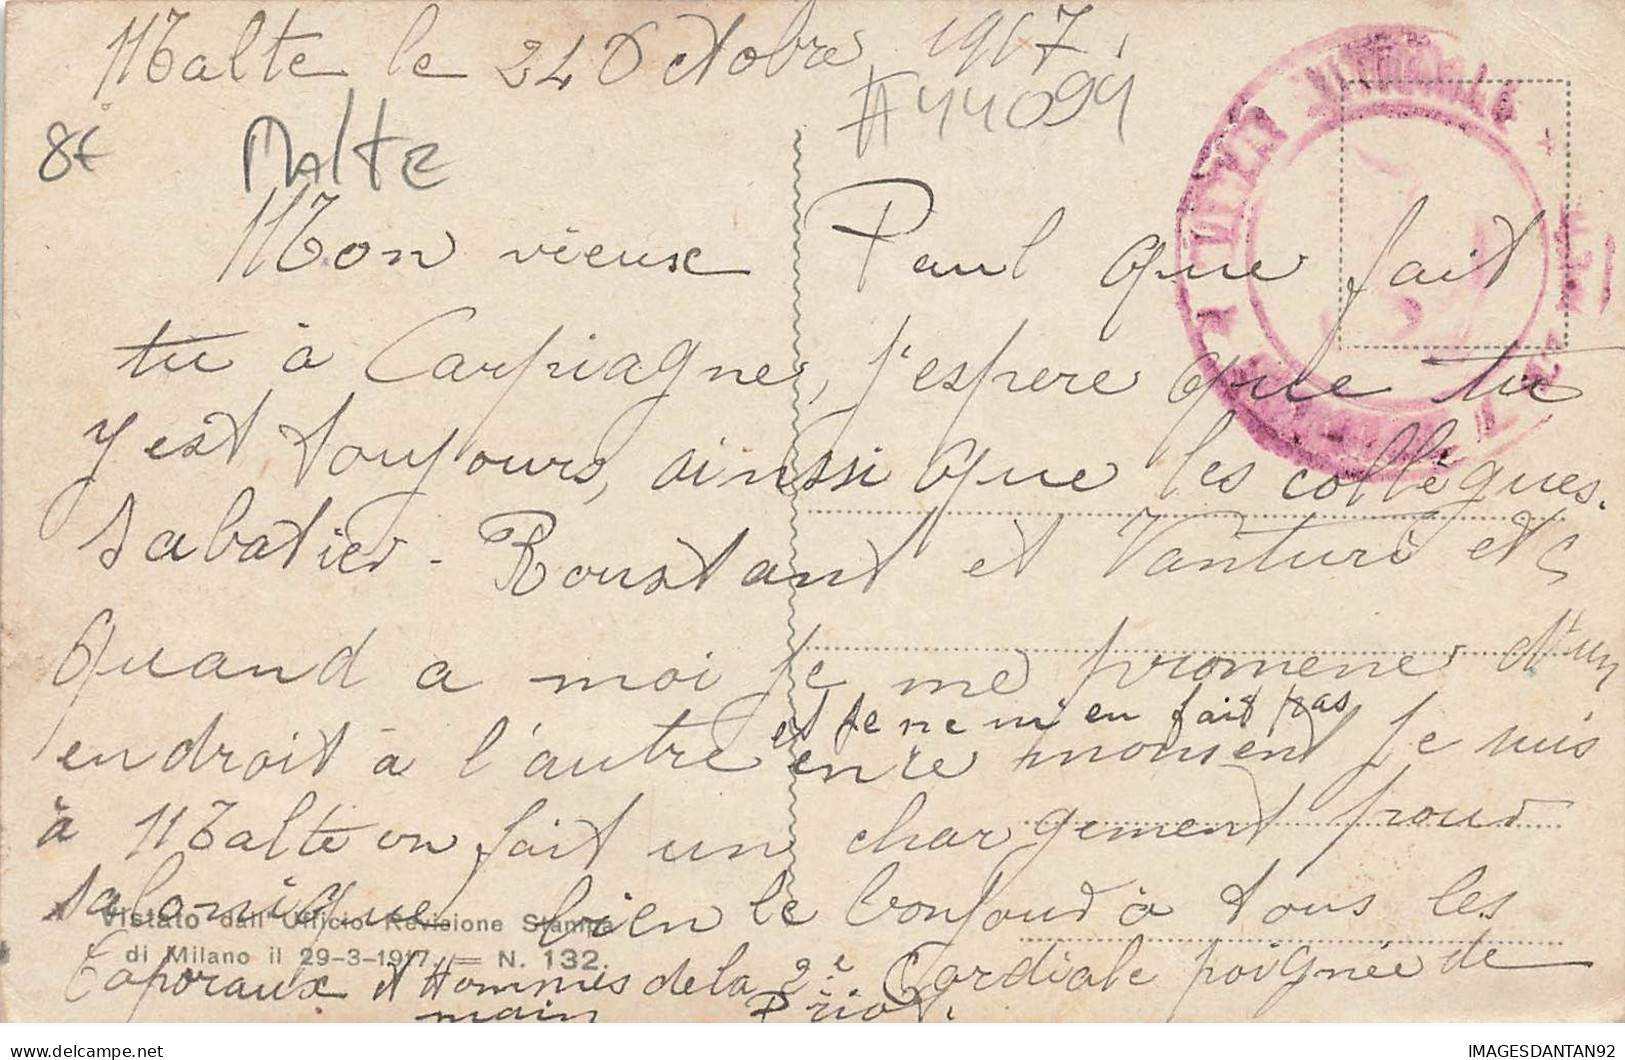 Malte le 24 Octobre 1917,
#44094
8€
Malte
Mon vieux Paul que fait
tu à Carpiagne, j'espere que tu
y est toujours, ainssi que les collègues.
Sabatier - Roustant et Vanturi etc
Quand a moi je me promene d'un
et je ne m'en fait pas
endroit à l'autre en ce moment je suis
à Malte on fait un chargement pour
Salonique bien le bonjour à tous les
Vistato dall' Ufficio Revisione Stampa
di Milano il 29-3-1917. = N. 132.
Caporaux et Hommes de la 2e Cordiale poignée de
main Priot.
IMAGESDANTAN92
delcampe.net